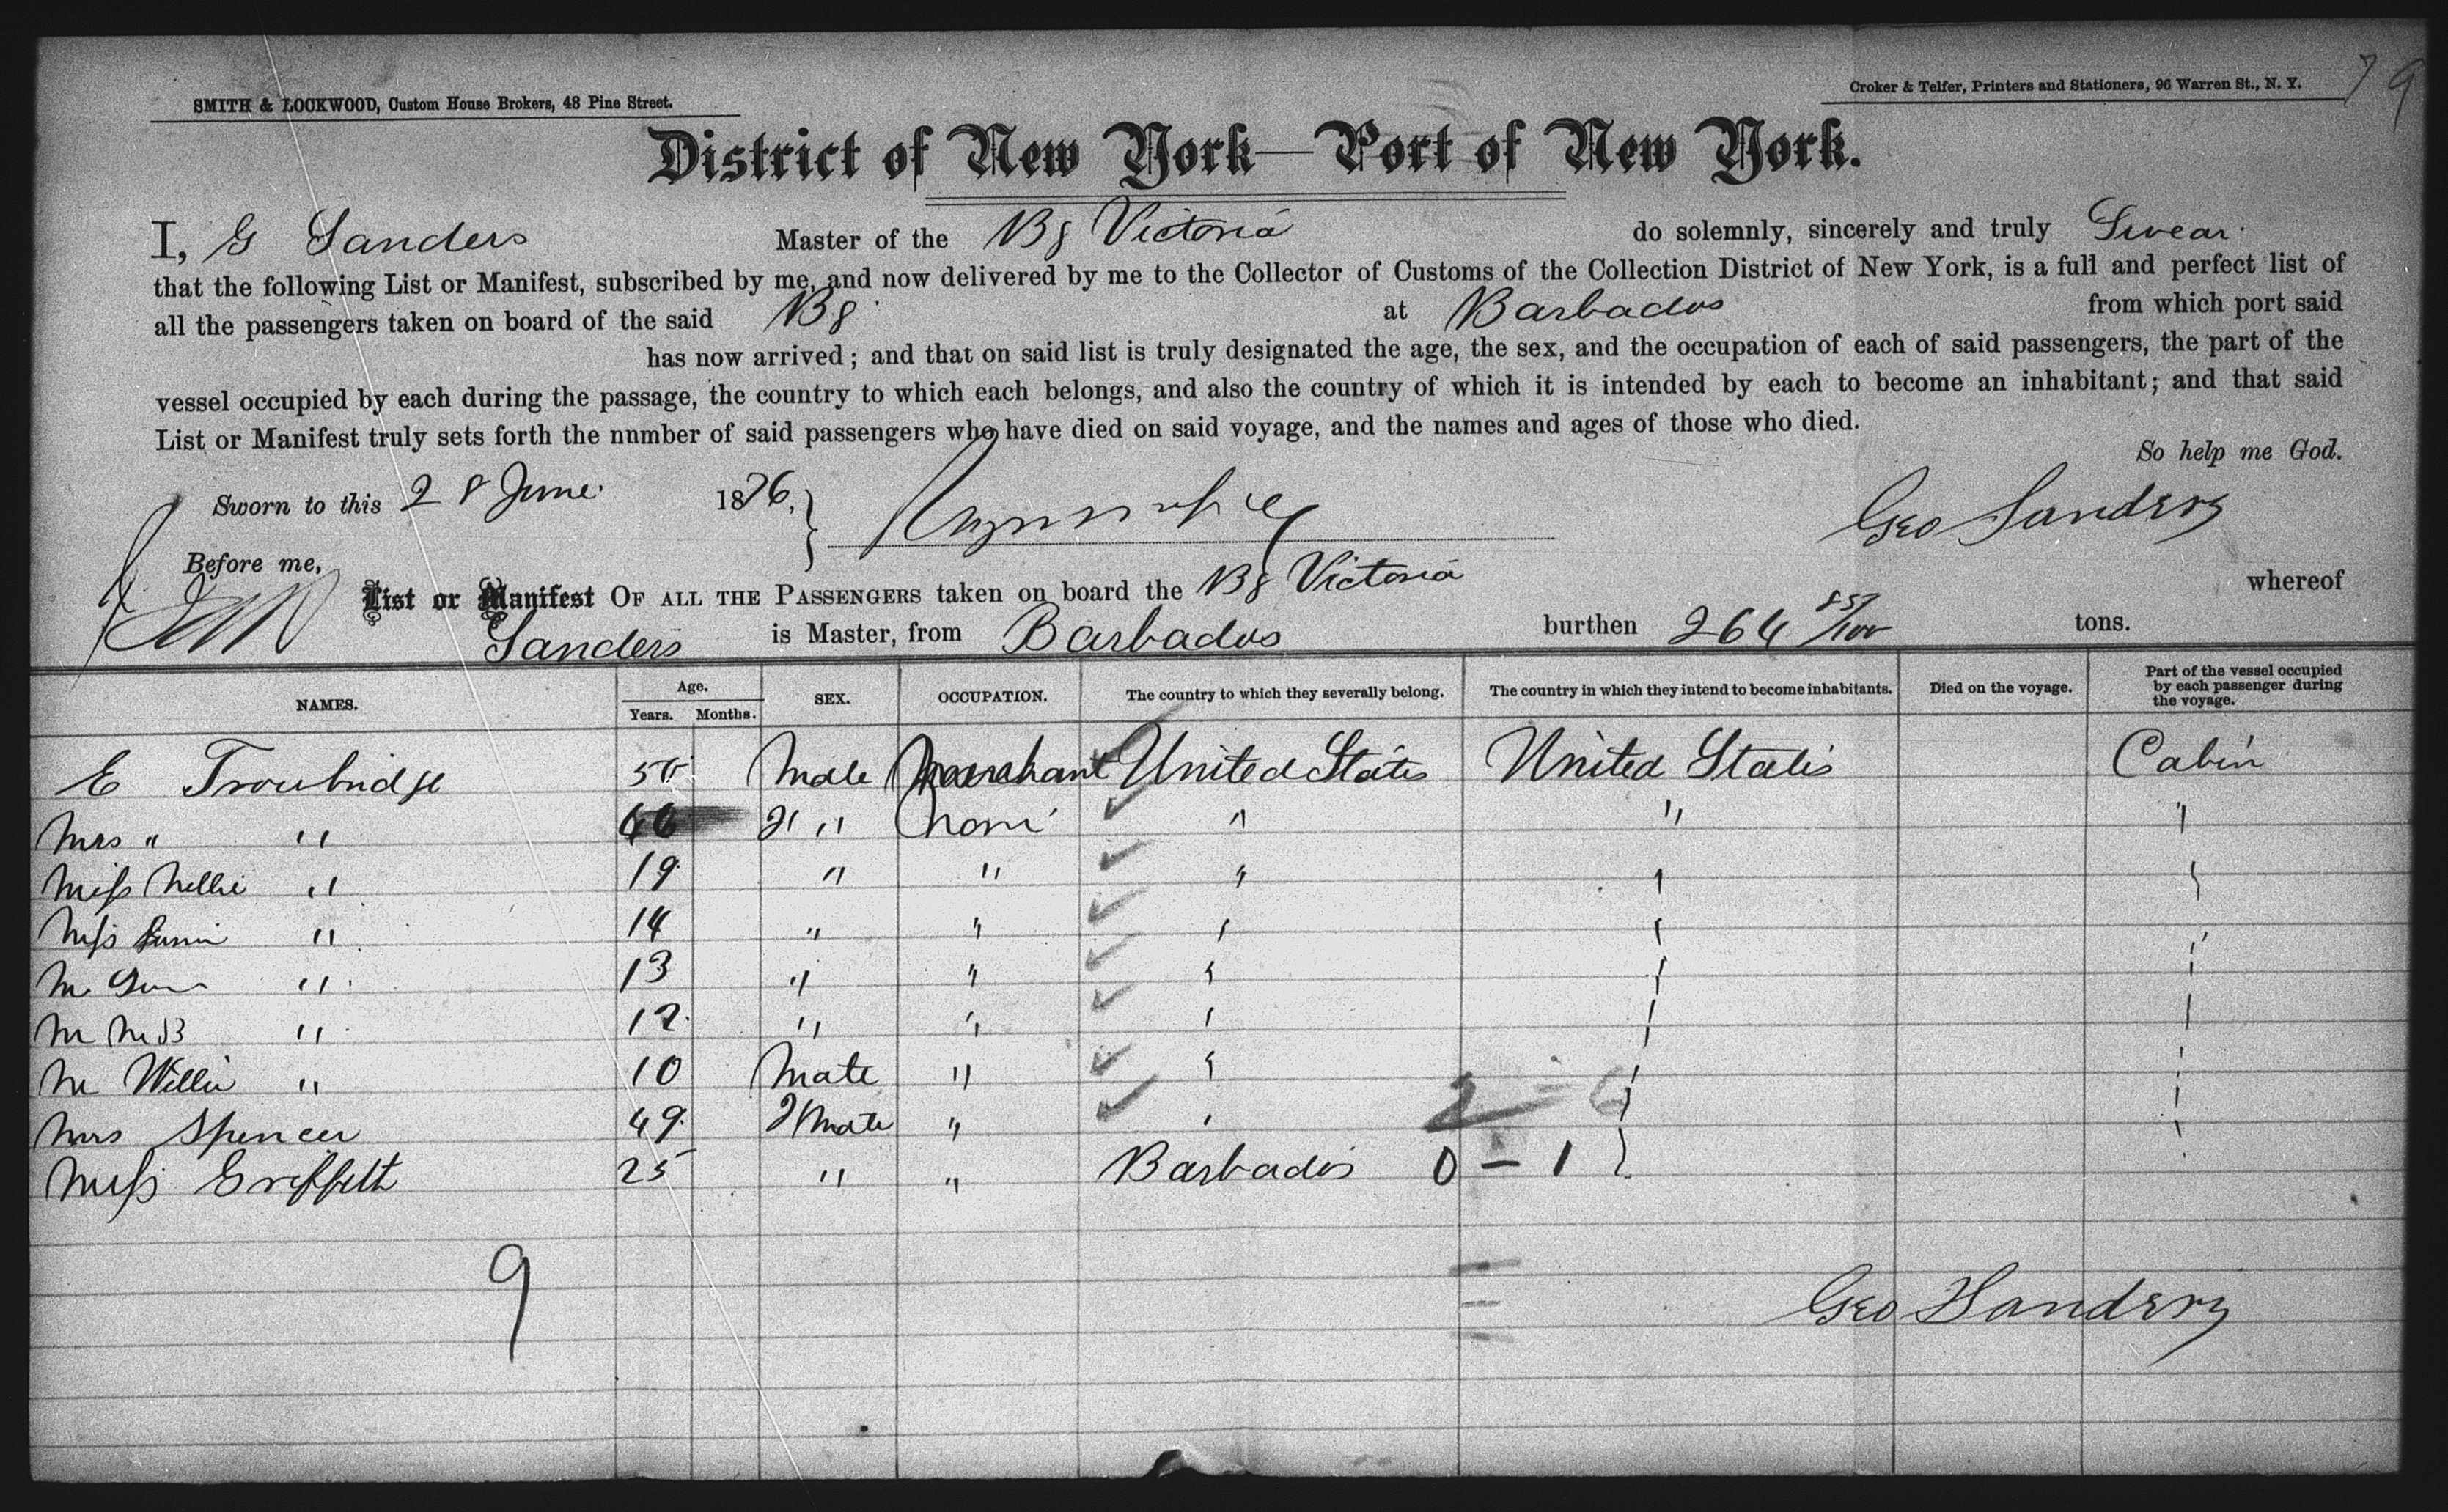 79
SMITH & LOCKWOOD, Custom House Brokers, 48 Pine Street.
Croker & Telfer, Printers and Stationers, 96 Warren St., N. Y.
District of New York—Port of New York.
I, G Sanders Master of the Bg Victoria do solemnly, sincerely and truly Swear
that the following List or Manifest, subscribed by me, and now delivered by me to the Collector of Customs of the Collection District of New York, is a full and perfect list of
all the passengers taken on board of the said Bg at Barbados from which port said
has now arrived; and that on said list is truly designated the age, the sex, and the occupation of each of said passengers, the part of the
vessel occupied by each during the passage, the country to which each belongs, and also the country of which it is intended by each to become an inhabitant; and that said
List or Manifest truly sets forth the number of said passengers who have died on said voyage, and the names and ages of those who died.
So help me God.
Sworn to this 28 June 1876, Geo Sanders
Before me,
List or Manifest OF ALL THE PASSENGERS taken on board the Bg Victoria whereof
Sanders is Master, from Barbados burthen 264 85/100 tons.
NAMES. Age. Years. Months. SEX. OCCUPATION. The country to which they severally belong. The country in which they intend to become inhabitants. Died on the voyage. Part of the vessel occupied by each passenger during the voyage.
E Trowbridge Male Merchant United States United States Cabin
Mrs " " 46 F " None " " "
Miss Nellie " 19 " " " " "
Miss " 14 " " " " "
M " 13 " " " " "
M " 12 " " " " "
M Willie " 10 Male " " " "
2 - 6
Mrs Spencer 49 Fmale " " " "
Miss Griffith 25 " " Barbados 0 - 1 "
9
Geo Sanders